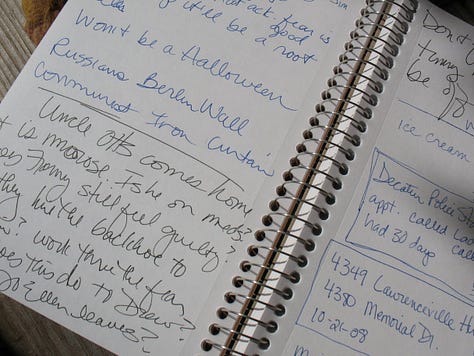 act. fear is
good
it'll be a root
Won't be a Halloween
Russians Berlin Wall
Communist Iron Curtain
Uncle Otts comes home
is morose. Fishe on meds?
Franny still feel guilty?
they hire the backhoe to
? work thru the fear
does this do to Drew?
Jo Ellen leaves?
Don't
be a
ice cream
Decatur Police
appt. called
had 30 days
4349 Lawrenceville H
4380 Memorial Dr.
10-21-08